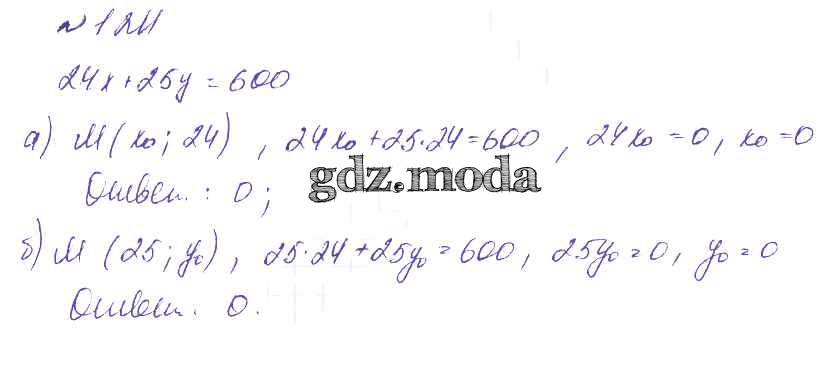 № 1211
24x+25y=600
а) M(x₀; 24), 24x₀+25·24=600, 24x₀=0, x₀=0
gdz.moda
Ответ: 0;
б) M(25; y₀), 25·24+25y₀=600, 25y₀=0, y₀=0
Ответ: 0.